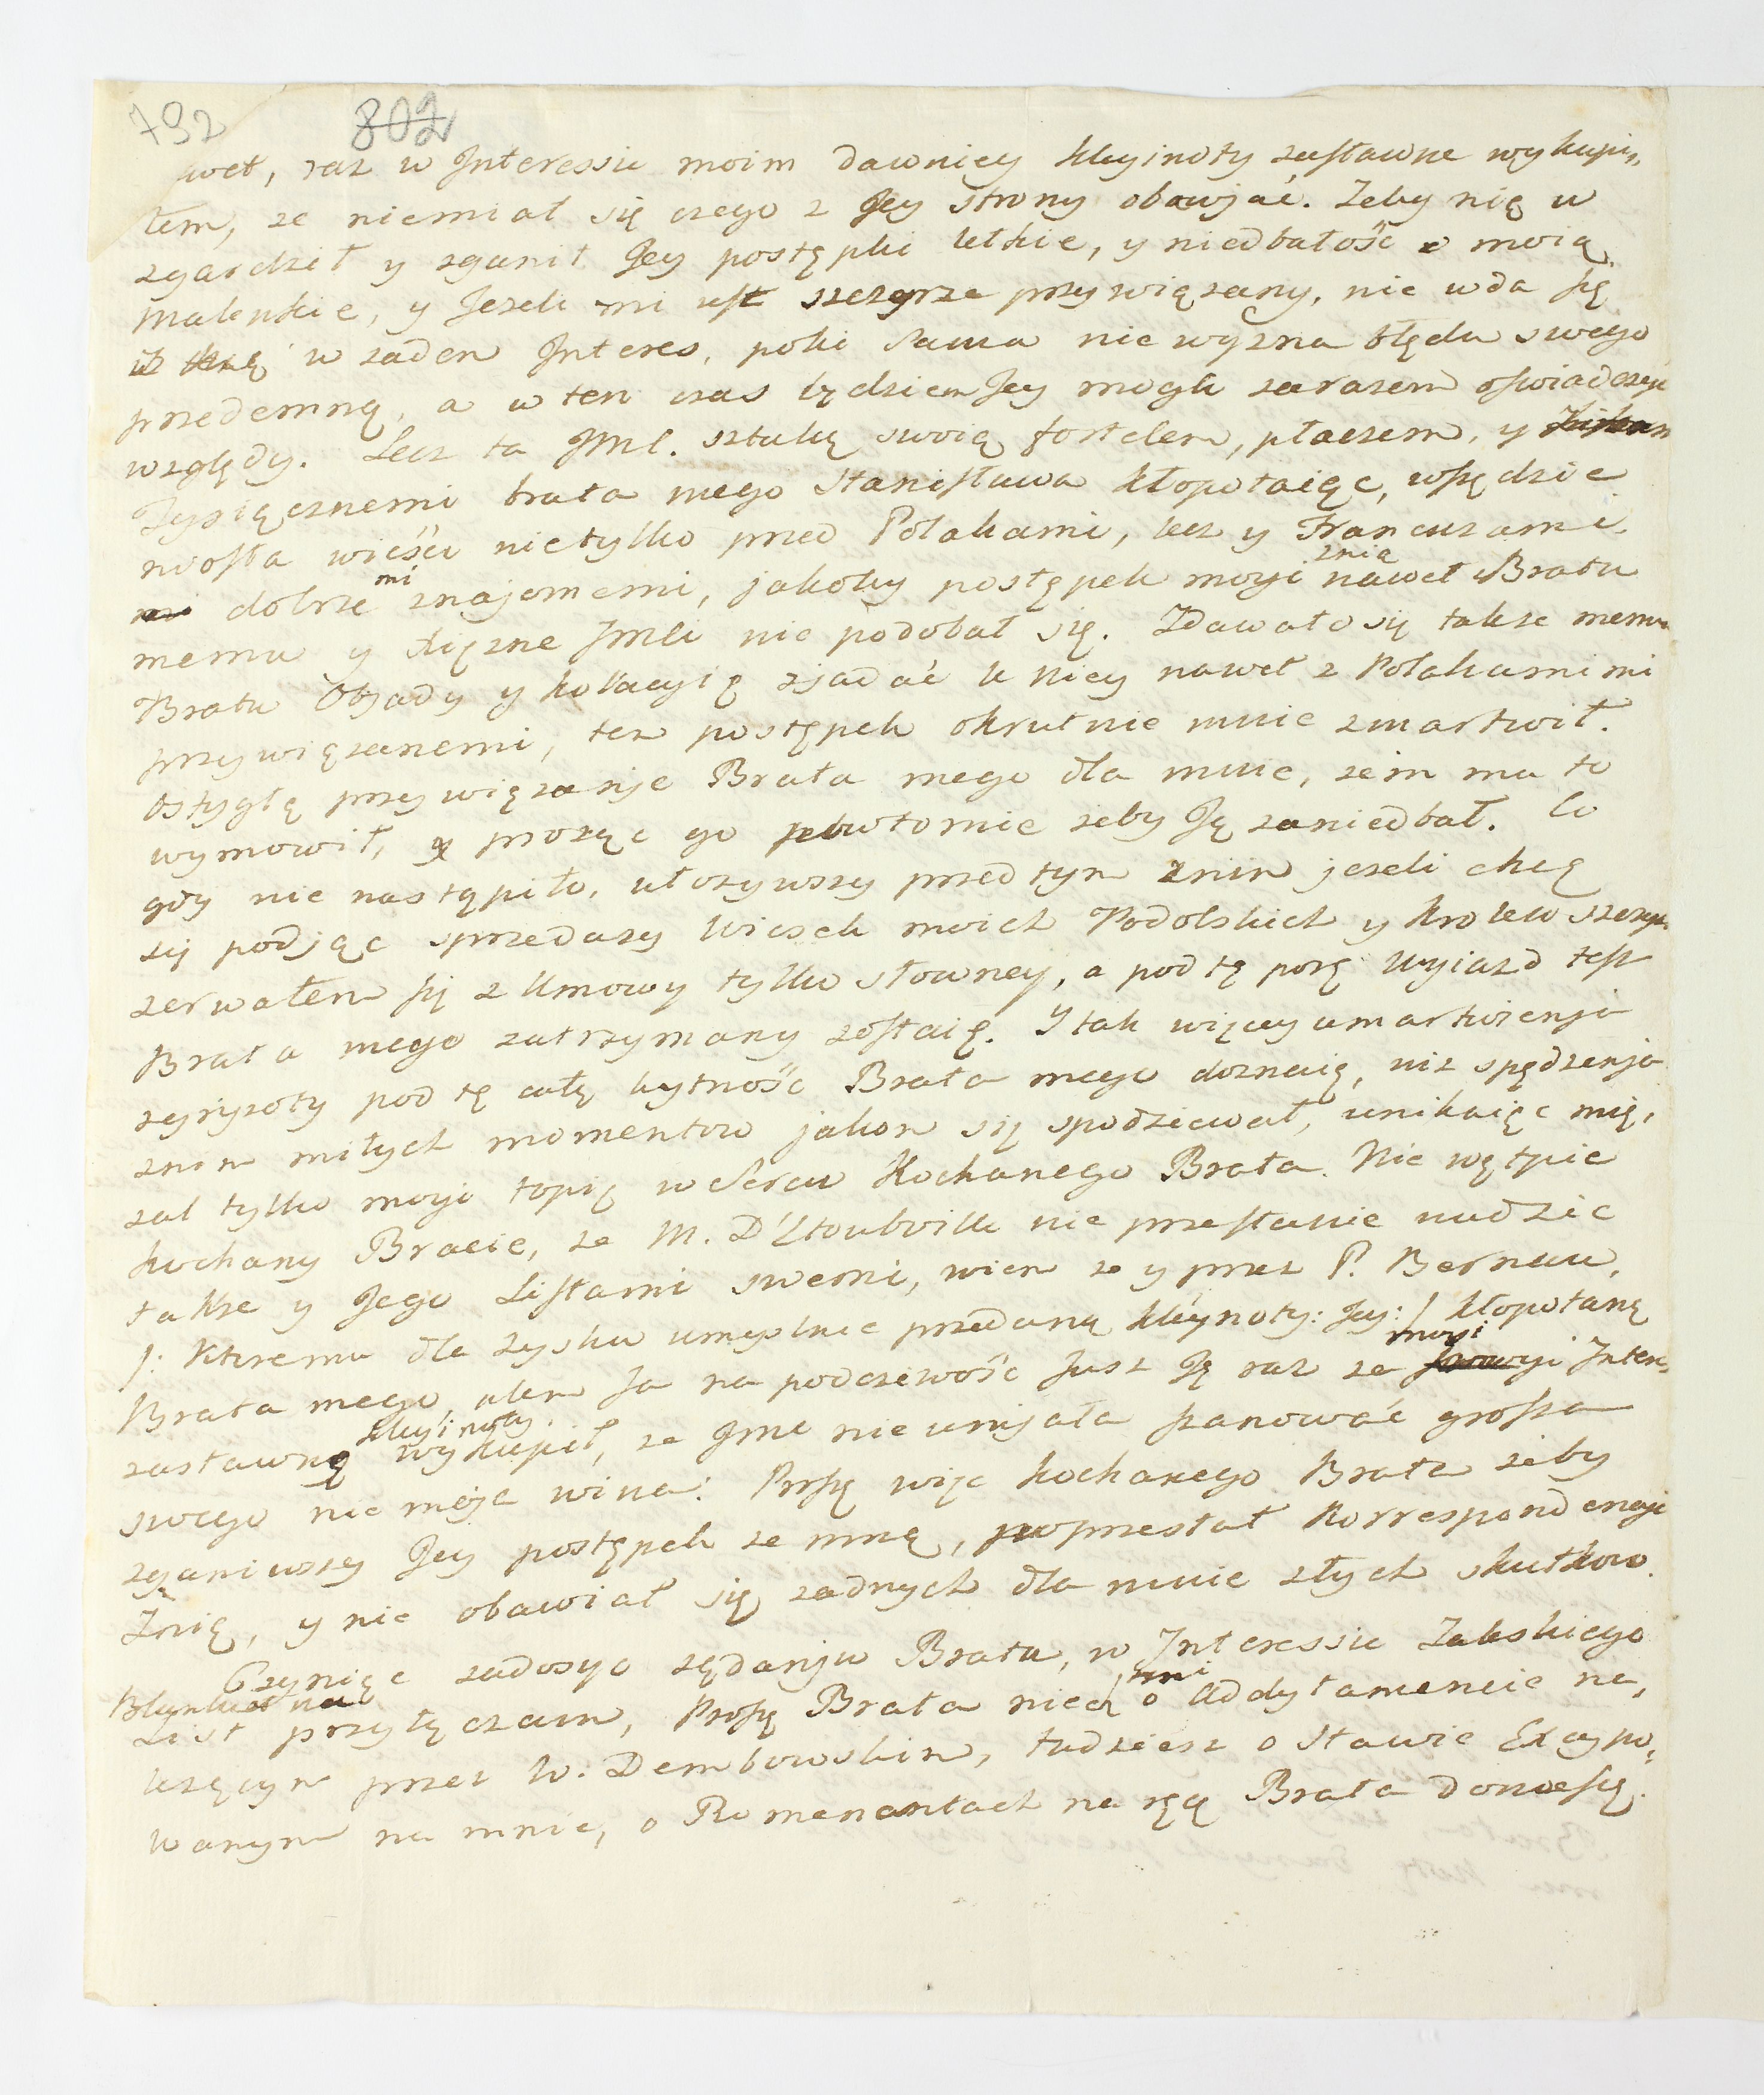 792 802
wet, raz w Interessie moim dawniey kleyinoty zastawne wykupi,
łem, ze niemiał się czego z Jey strony obawjać. Zeby nię w
zgardził y zganił Jey postępki letkie, y niedbałość o moią
malenkie, y Jezeli mi iest szczyrze przywięzany, nie wda się
w zaden Interes, poki sama nie wyzna błędu swego
przedemną, a w ten czas będziem Jey mogli zarazem oswiadczyć
względy. Lecz ta JMC. sztukę swoią fortelem, płaczem, y
Tysięcznemi brata mego Stanisława kłopotaięc, wszędzie
niosła wieści nietylko przed Polakami, lecz y Francuzami
dobrze mi znajomemi, jakoby postępek moyi znią nawet Bratu
memu y Xięzne JMCi nie podobał się. Zdawało się takze memu
Bratu Objady y kollacyię zjadać u Niey nawet z Polakami mi
przywięzanemi, ten postępek okrutnie mnie zmartwił.
Ostygłę przywięzanje Brata mego dla mnie, zem mu to
wymowił, prozęc go powtornie zeby Ję zaniedbał. Co
gdy nie nastąpiło, ułozywszy przedtym znim jezeli chcę
się podjęc sprzedazy Wiosek moich Podolskich y Krolewszczyn
zerwałem się z Umowy tylko słowney, a pod tę porę Wyiazd test
Brata mego zatrzymany zostaię. I tak więcey umartwienja
zgryzoty pod tę całę bytność Brata mego doznaię, niz spędzenja
znim miłych momentow jakom się spodziewał, unikaięc mię,
zal tylko moyi topię w Sercu Kochanego Brata. Nie wętpie
kochany Bracie, ze M. D'Etoubville nie przestanie nudzic
takze y Jego Listami swemi, wiem ze y przez P. Bernau,
/: Ktoremu dla zysku umyslnie przedanę kleynoty: Jey :/ kłopotanę
Brata mego, alem Ja na poczciwość Jusz Ję raz ze moyi Inters,
zastawnę kleyinoty wykupił, ze Jme nie umjała szanować grosza
swego nie moja wina. Proszę więc kochanego Brata zeby
zganiwszy Jey postępek ze mnę, poprzestał Korrespondencyi
Znię, y nie obawiał się zadnych dla mnie złych skutkow.
Czynięc zadosyc zędanju Brata, w Interessie Zaleskiego
Blankiet na List przyłęczam, Proszę Brata niech mi o Addytamencie na,
lezęcym przez W. Dembowskim, tudziesz o Stawie Excypo,
wanym na mnie, o Remenantach na ręcę Brata doniesię.